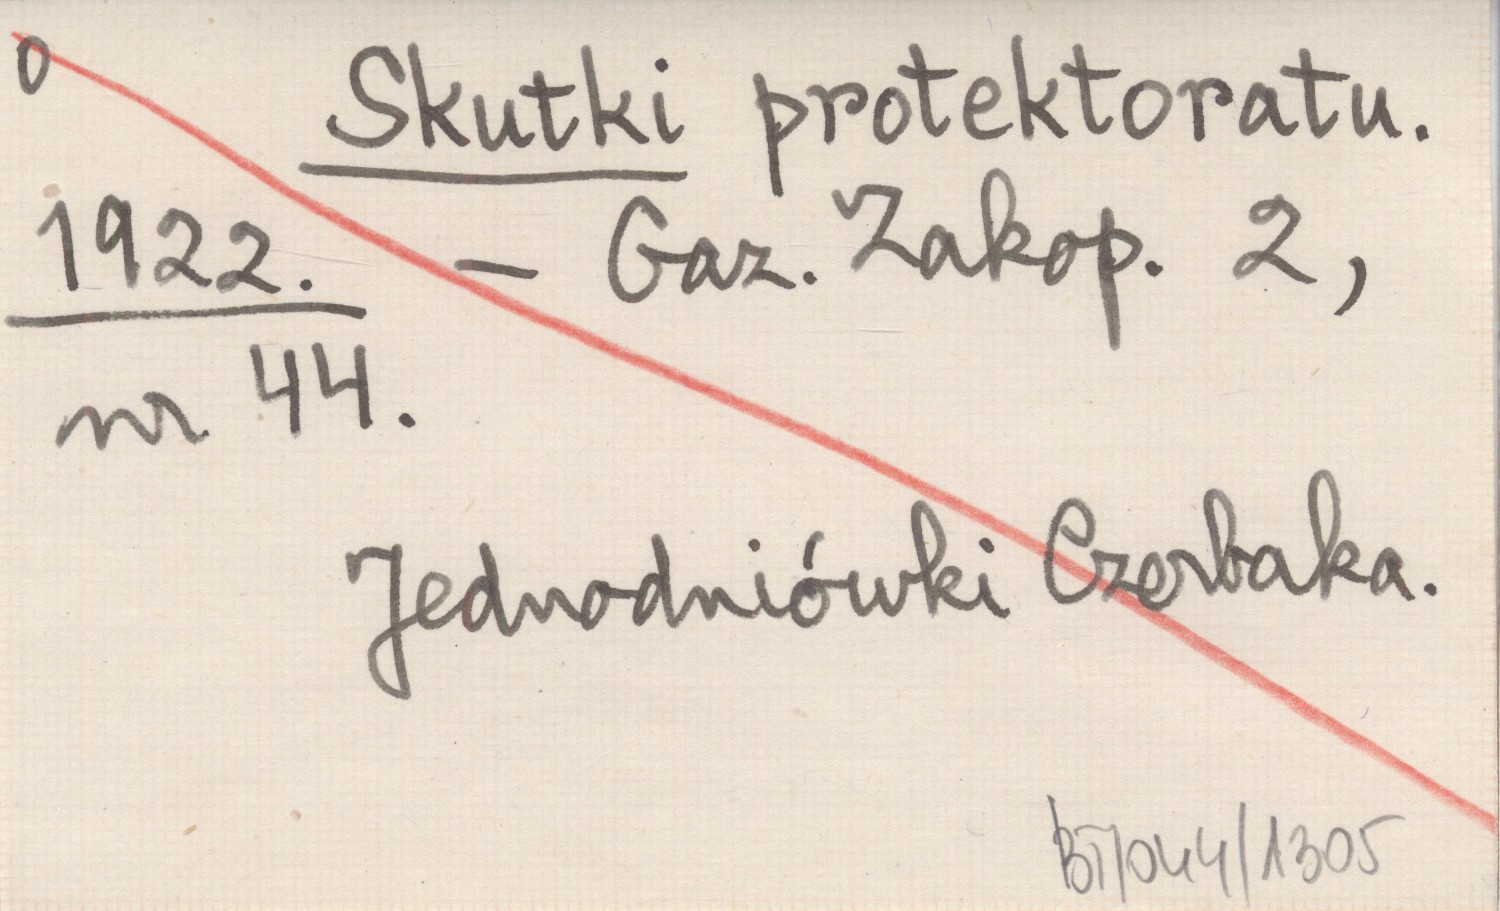 0 Skutki protektoratu.
1922. – Gaz. Zakop. 2,
nr 44.
Jednodniówki Czerbaka.
BT/044/1305